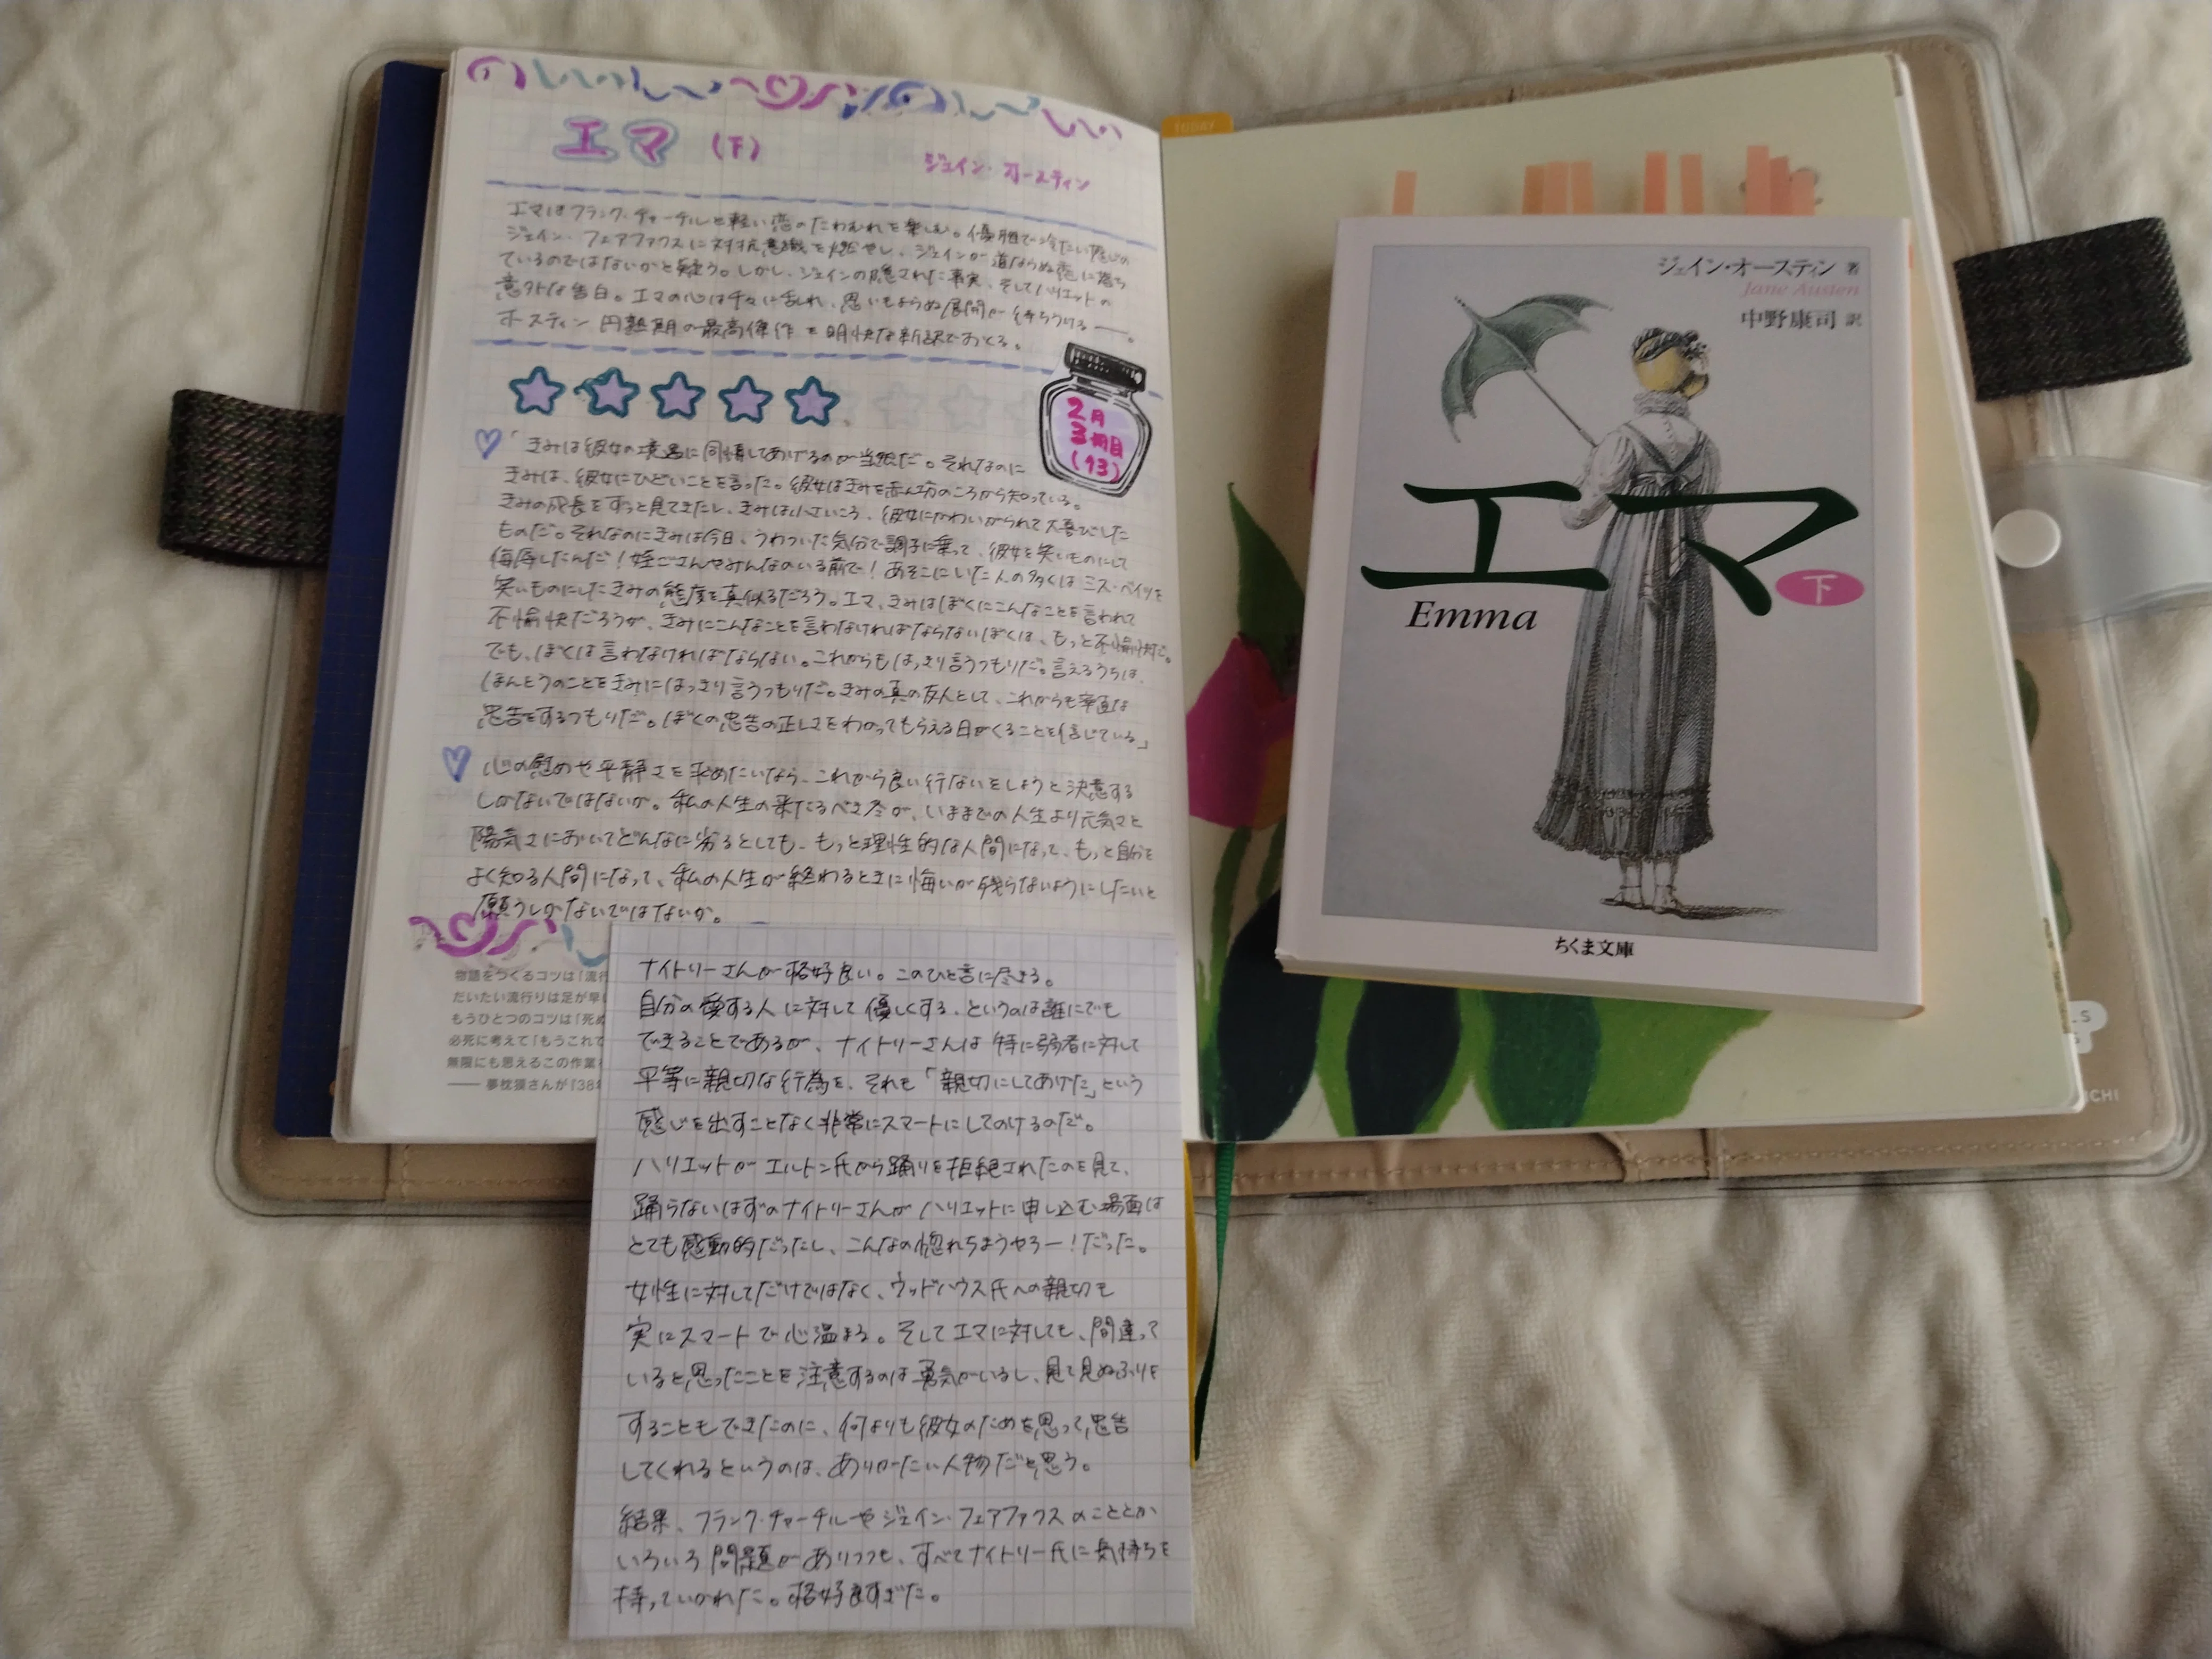 エマ (下)
ジェイン・オースティン
エマはフランク・チャーチルと軽い恋のたわむれを楽しむ。優雅で冷たい感じの
ジェイン・フェアファクスに対抗意識を燃やし、ジェインが道ならぬ恋に落ち
ているのではないかと疑う。しかし、ジェインの隠された事実、そしてハリエットの
意外な告白。エマの心は千々に乱れ、思いもよらぬ展開が待ちうける――。
オースティン円熟期の最高傑作を明快な新訳でおくる。
2月
3冊目
(13)
「きみは彼女の境遇に同情してあげるのが当然だ。それなのに
きみは、彼女にひどいことを言った。彼女はきみを赤ん坊のころから知っている。
きみの成長をずっと見てきたし、きみは小さいころ、彼女にかわいがられて大喜びした
ものだ。それなのにきみは今日、うわついた気分で調子に乗って、彼女を笑いものにして
侮辱したんだ!姪ごさんやみんなのいる前で!あそこにいた人の多くはミス・ベイツを
笑いものにしたきみの態度を真似るだろう。エマ、きみはぼくにこんなことを言われて
不愉快だろうが、きみにこんなことを言わなければならないぼくは、もっと不愉快だ。
でも、ぼくは言わなければならない。これからもはっきり言うつもりだ。言えるうちは、
ほんとうのことをきみにはっきり言うつもりだ。きみの真の友人として、これからも率直な
忠告をするつもりだ。ぼくの忠告の正しさをわかってもらえる日がくることを信じている」
心の慰めや平静さを求めたいなら、これから良い行ないをしようと決意する
しかないではないか。私の人生の来たるべき冬が、いままでの人生より元気さと
陽気さにおいてどんなに劣るとしても、もっと理性的な人間になって、もっと自分を
よく知る人間になって、私の人生が終わるときに悔いが残らないようにしたいと
願うしかないではないか。
物語をつくるコツは「流行
だいたい流行りは足が早
もうひとつのコツは「死ぬ
必死に考えて「もうこれで
無限にも思えるこの作業
――夢枕獏さんが『38
ナイトリーさんが格好良い。このひと言に尽きる。
自分の愛する人に対して優しくする、というのは誰にでも
できることであるが、ナイトリーさんは特に弱者に対して
平等に親切な行為を、それも「親切にしてあげた」という
感じを出すことなく非常にスマートにしてのけるのだ。
ハリエットがエルトン氏から踊りを拒絶されたのを見て、
踊らないはずのナイトリーさんがハリエットに申し込む場面は
とても感動的だったし、こんなの惚れちまうやろー!だった。
女性に対してだけではなく、ウッドハウス氏への親切も
実にスマートで心温まる。そしてエマに対しても、間違って
いると思ったことを注意するのは勇気がいるし、見て見ぬふりを
することもできたのに、何よりも彼女のためを思って忠告
してくれるというのは、ありがたい人物だと思う。
結果、フランク・チャーチルやジェイン・フェアファクスのこととか
いろいろ問題がありつつも、すべてナイトリー氏に気持ちを
持っていかれた。格好良すぎだ。
TODAY
ジェイン・オースティン 著
Jane Austen
中野康司 訳
エマ
下
Emma
ちくま文庫